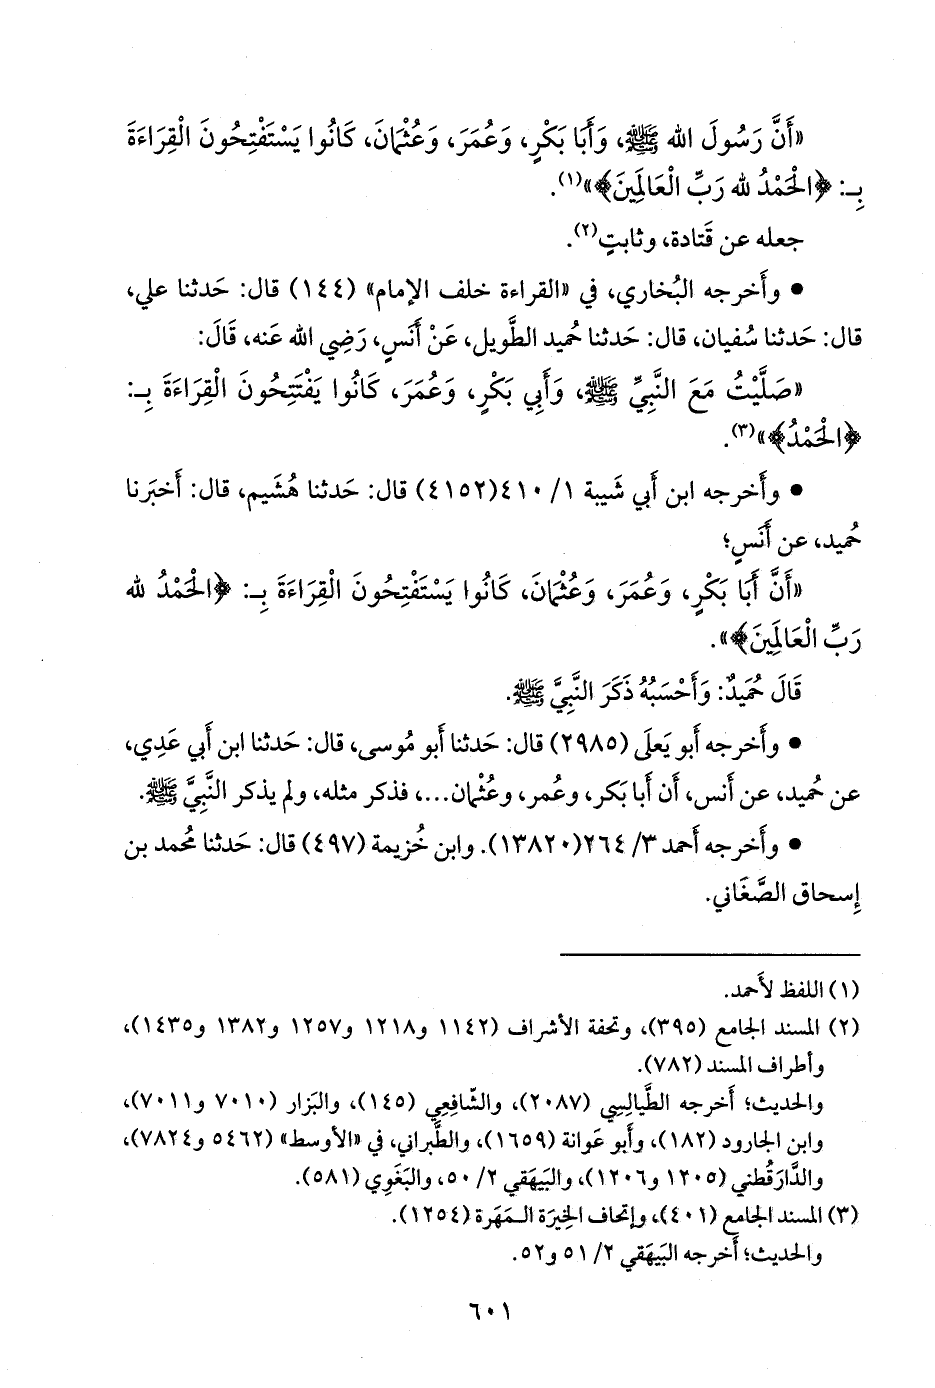 «أَنَّ رَسُولَ الله ﷺ، وَأَبَا بَكْرٍ، وَعُمَرَ، وَعُثْمَانَ، كَانُوا يَسْتَفْتِحُونَ الْقِرَاءَةَ
بِـ: ﴿الْحَمْدُ لله رَبِّ الْعَالَمِينَ﴾»(١).
جعله عن قَتادة، وثابتٍ(٢).
• وأَخرجه البُخاري، في «القراءة خلف الإمام» (١٤٤) قال: حَدثنا علي،
قال: حَدثنا سُفيان، قال: حَدثنا حُميد الطَّويل، عَنْ أَنَسٍ، رَضِي الله عَنه، قَالَ:
«صَلَّيْتُ مَعَ النَّبِيِّ ﷺ، وَأَبِي بَكْرٍ، وَعُمَرَ، كَانُوا يَفْتَتِحُونَ الْقِرَاءَةَ بِـ:
﴿الْحَمْدُ﴾»(٣).
• وأَخرجه ابن أَبي شَيبة ١/ ٤١٠(٤١٥٢) قال: حَدثنا هُشَيم، قال: أَخبَرنا
حُميد، عن أَنَسٍ؛
«أَنَّ أَبَا بَكْرٍ، وَعُمَرَ، وَعُثْمَانَ، كَانُوا يَسْتَفْتِحُونَ الْقِرَاءَةَ بِـ: ﴿الْحَمْدُ لله
رَبِّ الْعَالَمِينَ﴾».
قَالَ حُمَيدٌ: وَأَحْسَبُهُ ذَكَرَ النَّبِيَّ ﷺ.
• وأَخرجه أَبو يَعلَى (٢٩٨٥) قال: حَدثنا أَبو مُوسى، قال: حَدثنا ابن أَبي عَدِي،
عن حُميد، عن أَنس، أَن أَبا بَكر، وعُمر، وعُثمان...، فذكر مثله، ولم يذكر النَّبيَّ ﷺ.
• وأَخرجه أَحمد ٣/ ٢٦٤(١٣٨٢٠). وابن خُزيمة (٤٩٧) قال: حَدثنا مُحمد بن
إِسحاق الصَّغَاني.
(١) اللفظ لأَحمد.
(٢) المسند الجامع (٣٩٥)، وتحفة الأشراف (١١٤٢ و١٢١٨ و١٢٥٧ و١٣٨٢ و١٤٣٥)،
وأطراف المسند (٧٨٢).
والحديث؛ أَخرجه الطَّيالِسِي (٢٠٨٧)، والشَّافِعِي (١٤٥)، والبَزار (٧٠١٠ و٧٠١١)،
وابن الجارود (١٨٢)، وأَبو عَوانة (١٦٥٩)، والطَّبراني، في «الأوسط» (٥٤٦٢ و٧٨٢٤)،
والدَّارَقُطني (١٢٠٥ و١٢٠٦)، والبَيهَقي ٢/ ٥٠، والبَغَوِي (٥٨١).
(٣) المسند الجامع (٤٠١)، وإتحاف الخِيرَة المَهَرة (١٢٥٤).
والحديث؛ أَخرجه البَيهَقي ٢/ ٥١ و٥٢.
٦٠١